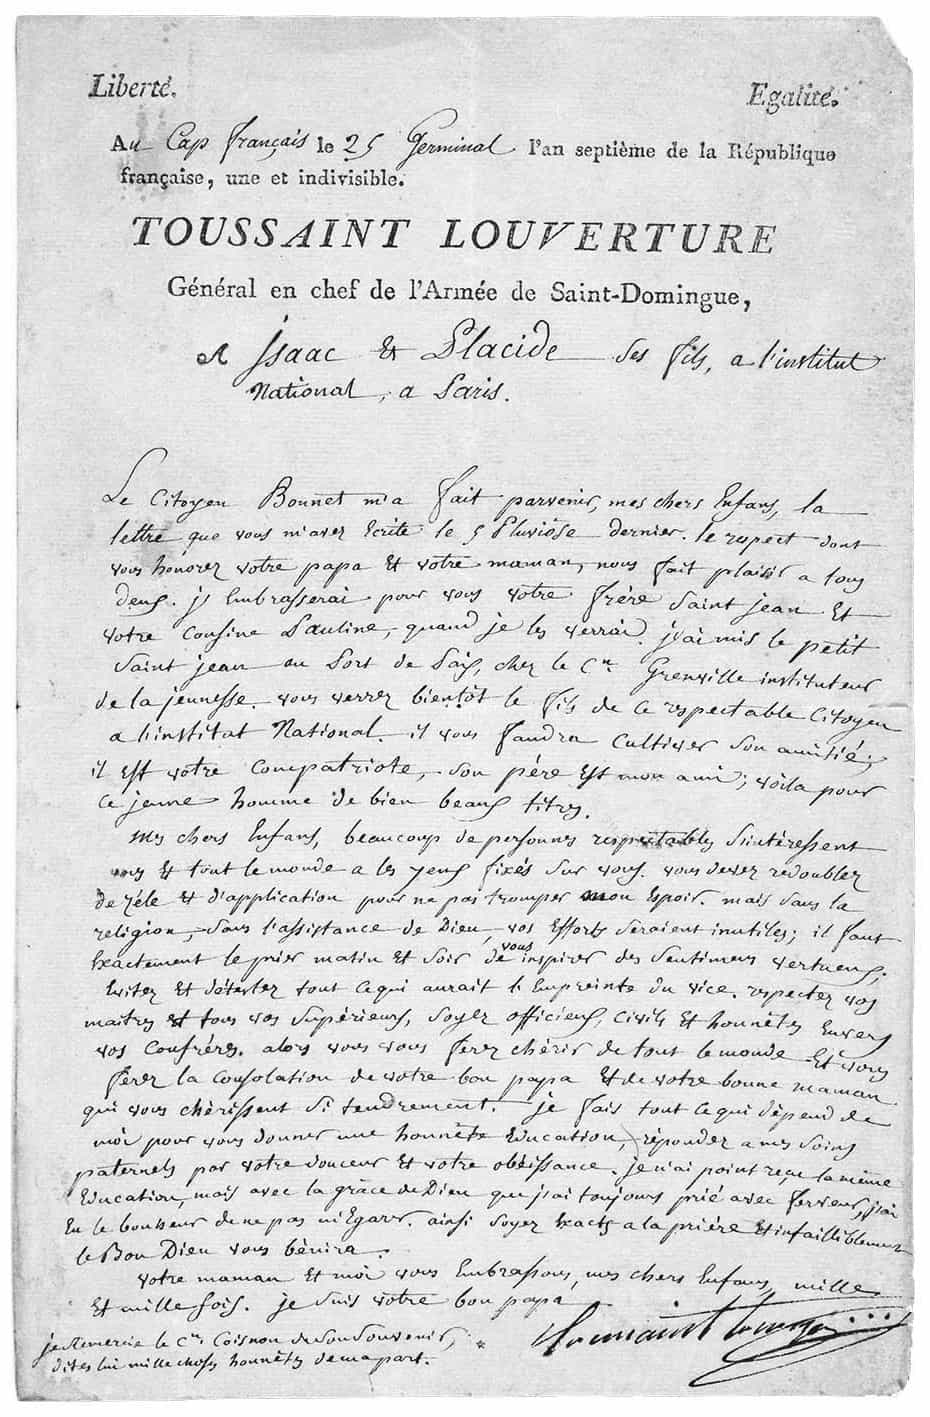 Liberté. Egalité.
Au Cap français le 25 Germinal l'an septième de la République
française, une et indivisible.
TOUSSAINT LOUVERTURE
Général en chef de l'Armée de Saint-Domingue,
A Isaac & Placide ses fils, a l'institut
National, a Paris.
Le Citoyen Bonnet m'a fait parvenir, mes chers Enfans, la
lettre que vous m'avez Ecrite le 5 Pluviôse dernier. le respect dont
vous honorez votre papa Et votre maman, nous fait plaisir a tous
deux. j'Embrasserai pour vous votre frère Saint jean Et
votre Cousine Pauline, quand je les verrai. j'ai mis le petit
Saint jean au Port de Paix, chez le Cen. Grenville instituteur
de la jeunesse. vous verrez bientôt le fils de Ce respectable Citoyen
a l'institut National. il vous faudra Cultiver son amitié;
il Est votre Compatriote, son père Est mon ami; voila pour
Ce jeune homme de bien beaux titres.
Mes chers Enfans, beaucoup de personnes respectables s'intéressent
Et tout le monde a les yeux fixés sur vous. vous devez redoubler
de zéle Et d'application pour ne pas tromper mon Espoir. mais sans la
religion, sans l'assistance de Dieu, vos Efforts seraient inutiles; il faut
Exactement le prier matin Et soir de vous inspirer des sentimens vertueux.
Evitez Et détestez tout Ce qui aurait l'Empreinte du vice. respectez vos
maitres Et tous vos supérieurs, soyez officieux, Civils Et honnêtes Envers
vos Confréres. alors vous vous ferez chérir de tout le monde Et vous
ferez la Consolation de votre bon papa Et de votre bonne maman
qui vous chérissent si tendrement. je fais tout Ce qui dépend de
moi pour vous donner une honnête Education, répondez a mes soins
paternels par votre douceur Et votre obéissance. je n'ai point reçu la même
Education, mais avec la grâce de Dieu que j'ai toujours prié avec ferveur, j'ai
Eu le bonheur de ne pas m'Egarer. ainsi soyez Exacts a la priére Et infailliblement
le Bon Dieu vous bénira.
Votre maman Et moi vous Embrassons, mes chers Enfans, mille
Et mille fois. je suis votre bon papa
Toussaint Louverture
je Remercie le Cen Coisnon de son souvenir,
dites lui mille choses honnêtes de ma part.